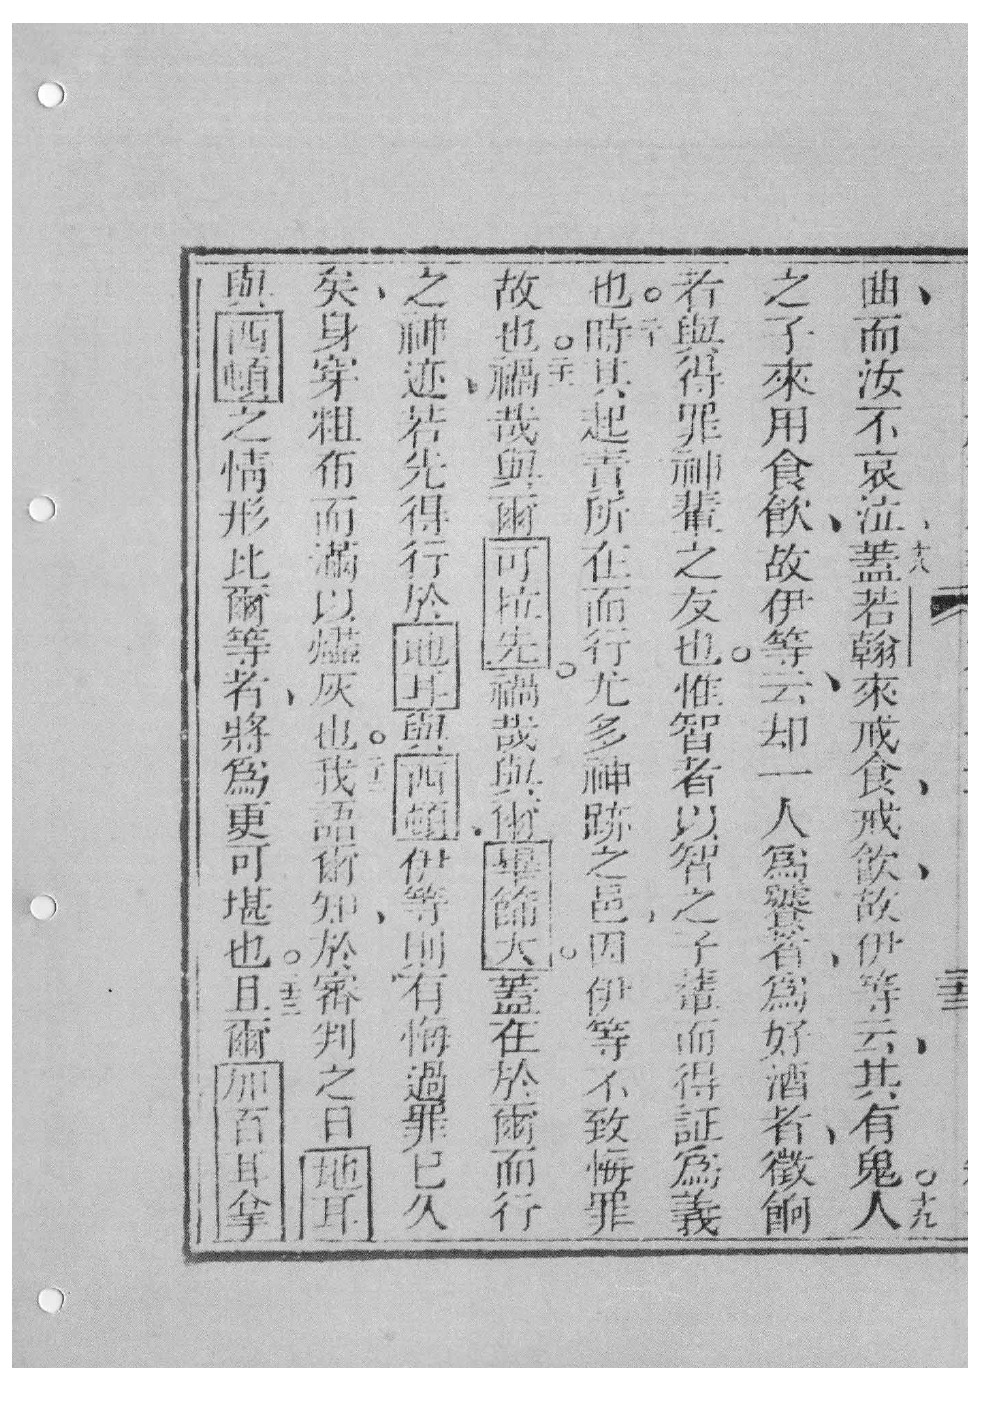 曲而汝不哀泣、十八蓋若翰來戒食、戒飲、故伊等云、其有鬼。十九人
之子來用食飲、故伊等云、却一人為饕者、為好酒者、徵餉
者與得罪神輩之友也。惟智者以智之子輩而得証為義
也。二十時其起責所在而行尤多神跡之邑、因伊等不致悔罪
故也。二十一禍哉與爾可拉先。禍哉與爾畢篩大。蓋在於爾而行
之神迹、若先得行於地耳與西頓、伊等則有悔過罪已久
矣、身穿粗布而滿以燼灰也。二十二我語爾知、於審判之日地耳
與西頓之情形比爾等者、將為更可堪也。二十三且爾加百耳拿